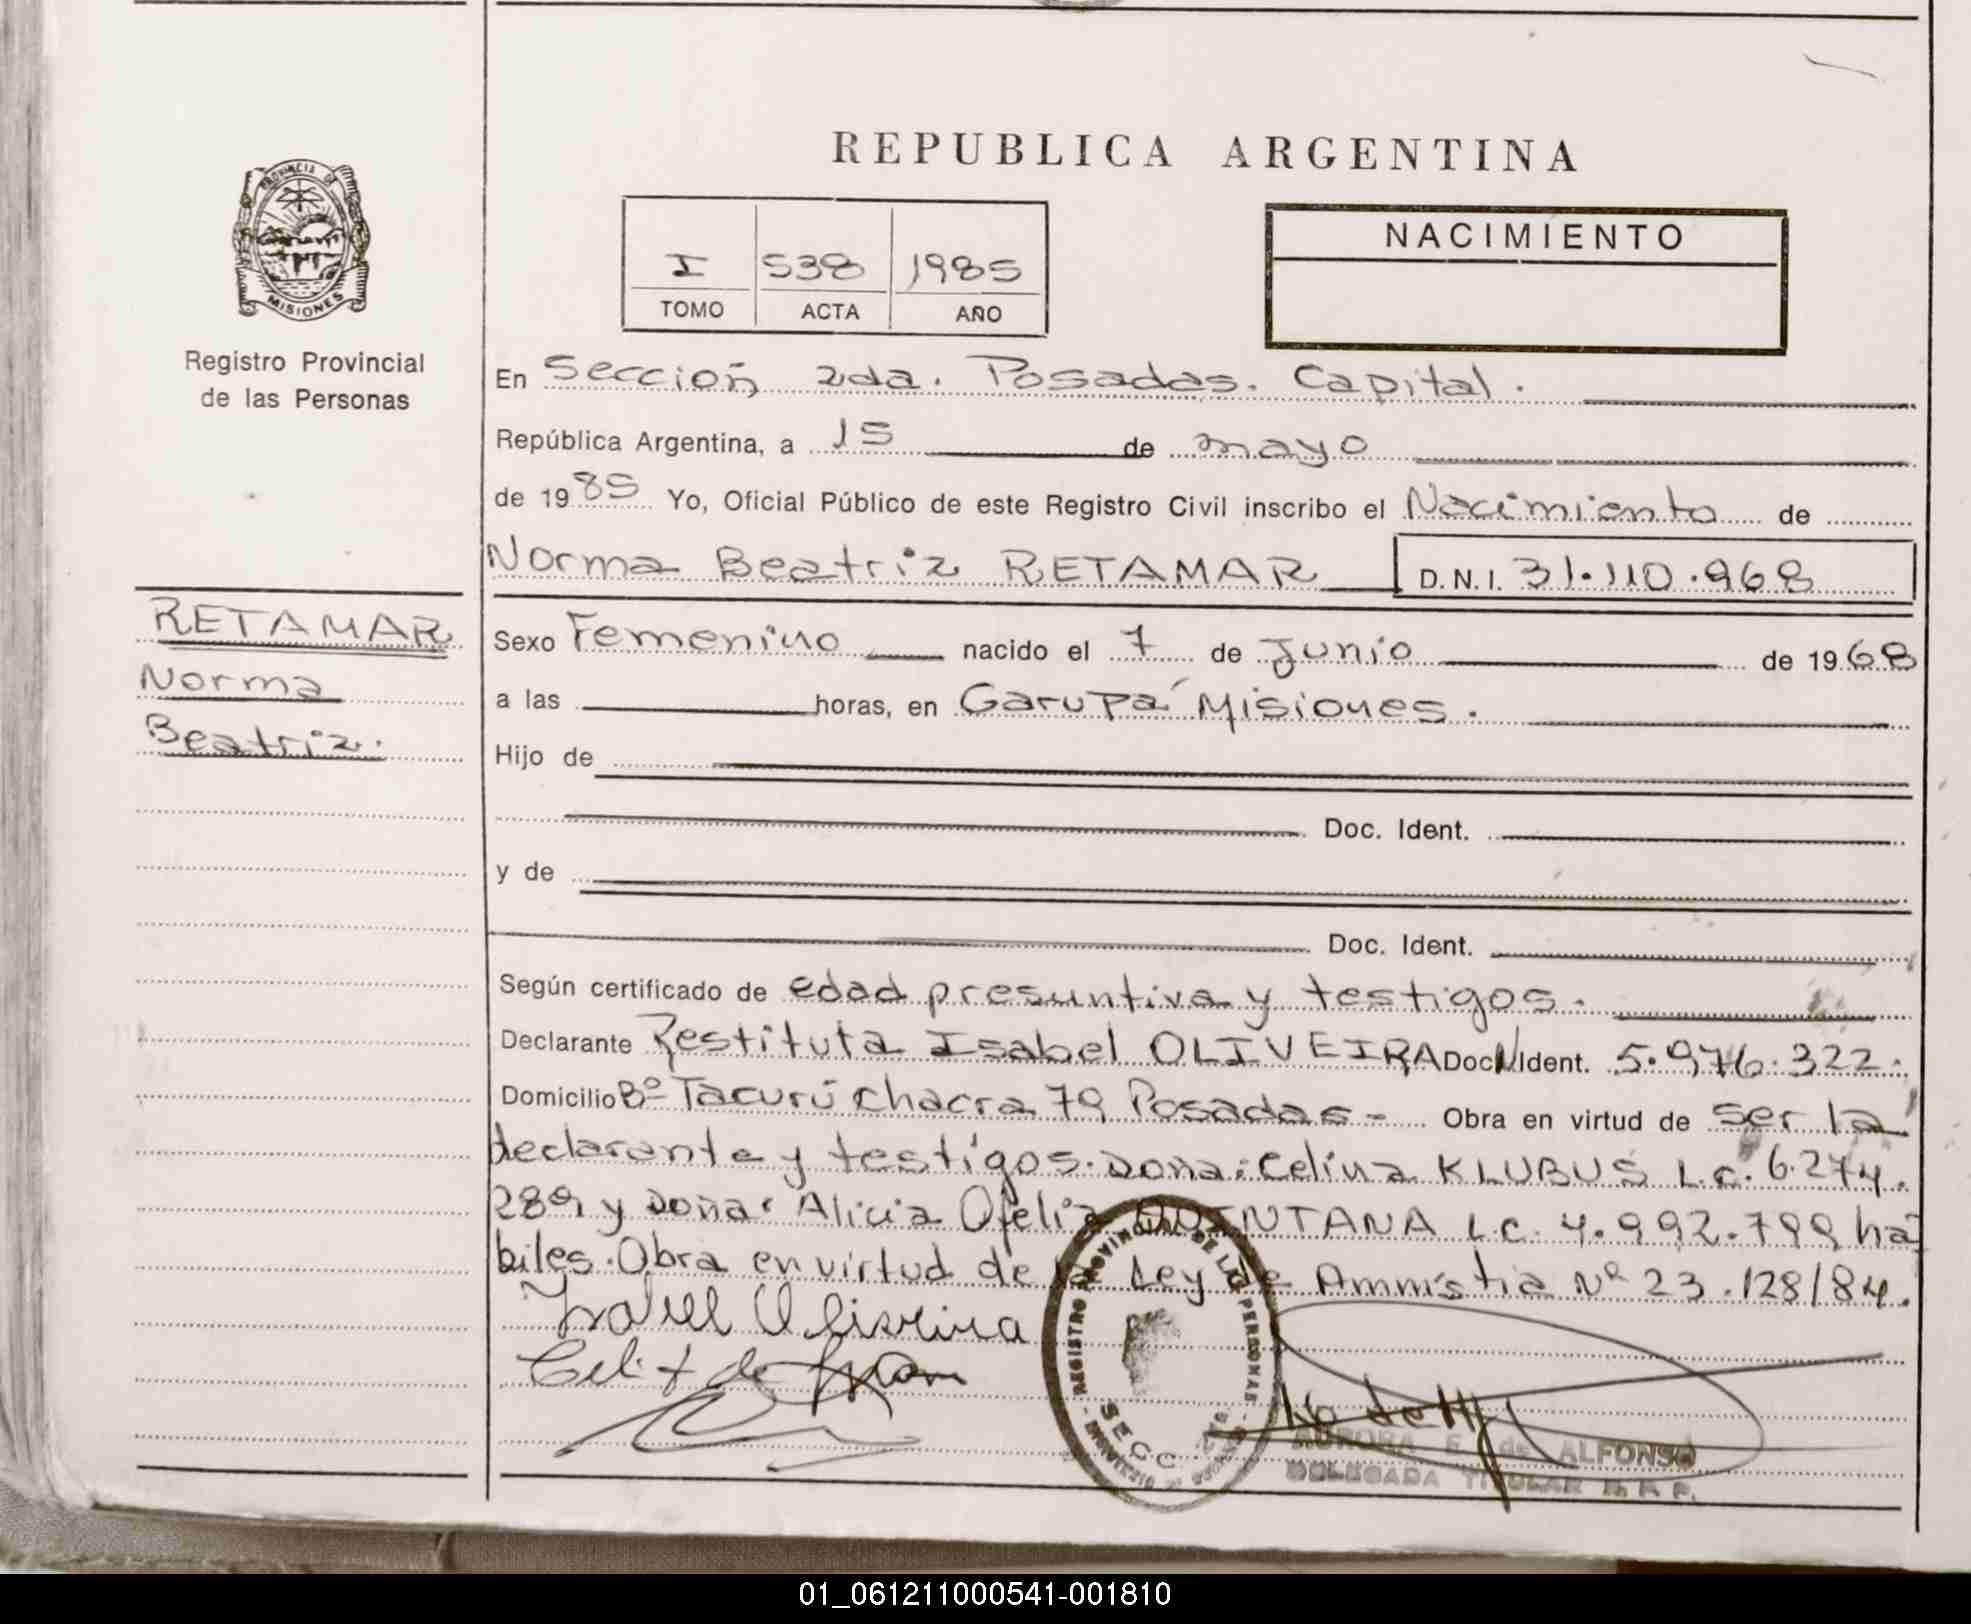 REPUBLICA ARGENTINA
PROVINCIA DE
MISIONES
Registro Provincial
de las Personas
I 538 1985
TOMO ACTA AÑO
NACIMIENTO
En Sección 2da. Posadas. Capital.
República Argentina, a 15 de mayo
de 1985 Yo, Oficial Público de este Registro Civil inscribo el Nacimiento de
Norma Beatriz RETAMAR D.N.I. 31.110.968
RETAMAR
Norma
Beatriz.
Sexo Femenino nacido el 7 de Junio de 1968
a las horas, en Garupá Misiones.
Hijo de
Doc. Ident.
y de
Doc. Ident.
Según certificado de edad presuntiva y testigos.
Declarante Restituta Isabel OLIVEIRA Doc. Ident. 5.976.322.
Domicilio Bº Tacurú chacra 79 Posadas - Obra en virtud de ser la
declarante y testigos. Doña: Celina KLUBUS L.C. 6.274.
289 y Doña: Alicia Ofelia QUINTANA L.C. 4.992.799 há
biles. Obra en virtud de la Ley de Amnistia Nº 23.128/84.
Isabel Oliveira
REGISTRO PROVINCIAL DE LAS PERSONAS
SECC
AURORA E. de ALFONSO
DELEGADA TITULAR R. P. P.
01_061211000541-001810